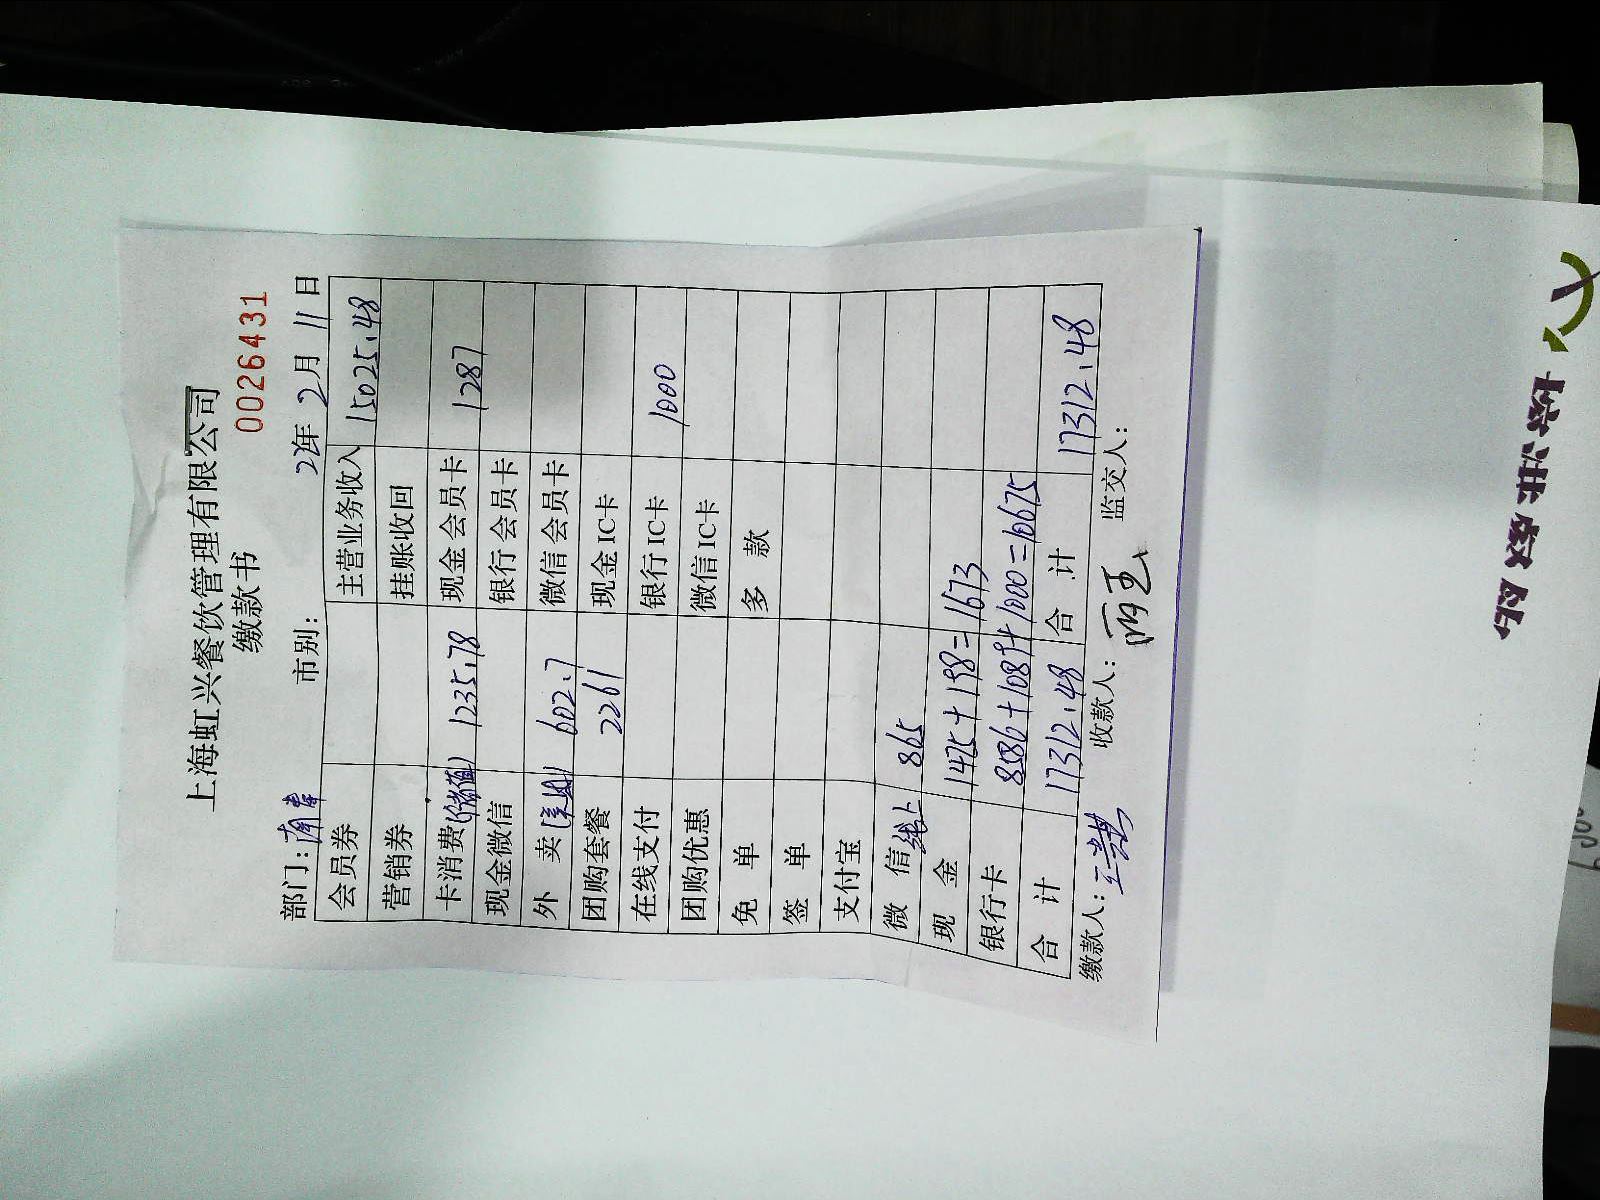 上海虹兴餐饮管理有限公司
缴款书 0026431
部门: 市别: 22年 2月 11日
会员券 主营业务收入 15025.48
营销券 挂账收回
卡消费(储值) 1235.78 现金会员卡 1287
现金微信 银行会员卡
外 卖 602.7 微信会员卡
团购套餐 2261 现金IC卡
在线支付 银行IC卡 1000
团购优惠 微信IC卡
免 单 多 款
签 单
支付宝
微 信 线上 865
现 金 1475+198=1673
银行卡 8586+1089+1000=10675
合 计 17312.48 合 计 17312.48
缴款人: 收款人: 监交人: